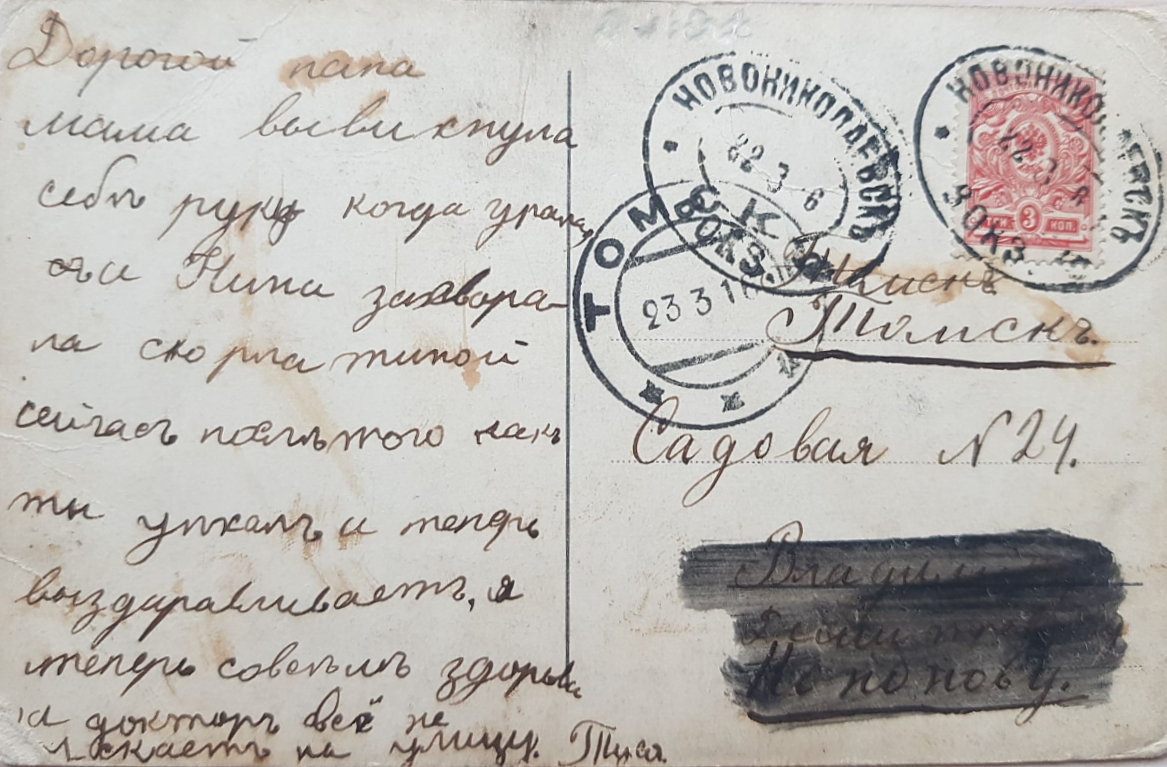 Дорогой папа
мама вывихнула
себѣ руку когда упала,
и Нина захвора-
ла скорлатиной
сейчасъ послѣ того какъ
ты уѣхалъ и теперь
выздаравливаетъ, я
теперь совсѣмъ здорова
а докторъ всё не
пускаетъ на улицу. Туся.
НОВОНИКОЛАЕВСКЪ
22 3 6
ВОКЗ.
НОВОНИКОЛАЕВСКЪ
22 3 8
ВОКЗ.
3 КОП.
ТОМСКЪ
23 3 1
Томскъ.
Садовая N 24.